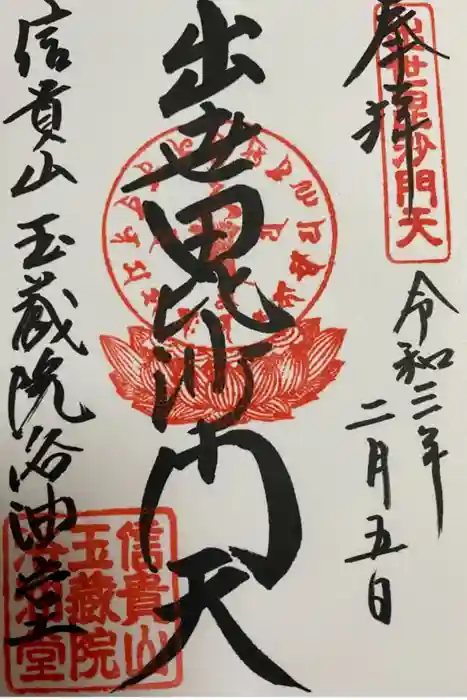 奉拝
出世毘沙門天
令和三年
二月五日
出世毘沙門天
信貴山 玉蔵院浴油堂
信貴山
玉藏院
浴油堂